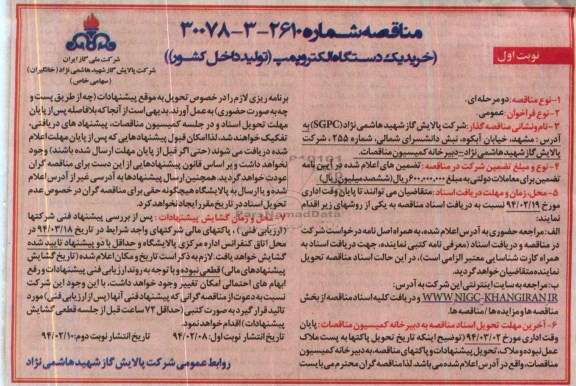 مناقصه شماره ۲۶۱۰-۳-۳۰۰۷۸
(خرید یک دستگاه الکتروپمپ (تولید داخل کشور))
شرکت ملی گاز ایران
شرکت پالایش گاز شهید هاشمی نژاد (خانگیران)
(سهامی خاص)
نوبت اول
۱-نوع مناقصه: دو مرحله‌ای.
۲-نوع فراخوان: عمومی.
۳-نام و نشانی مناقصه گذار: شرکت پالایش گاز شهید هاشمی نژاد (SGPC) به
آدرس: مشهد، خیابان آبکوه، نبش دانشسرای شمالی، شماره ۲۵۵، شرکت
پالایش گاز شهید هاشمی نژاد-دبیرخانه کمیسیون مناقصات.
۴-نوع و مبلغ تضمین شرکت در مناقصه: تضمین های اعلام شده در آیین نامه
تضمین برای معاملات دولتی به مبلغ ۶۰۰,۰۰۰,۰۰۰ ریال (ششصد میلیون ریال)
۵-محل، زمان و مهلت دریافت اسناد: متقاضیان می توانند تا پایان وقت اداری
مورخ ۹۴/۰۲/۱۹ نسبت به دریافت اسناد مناقصه به یکی از روشهای زیر اقدام
نمایند:
الف: مراجعه حضوری به آدرس اعلام شده، به همراه اصل نامه درخواست شرکت
در مناقصه و دریافت اسناد (معرفی نامه کتبی نماینده، جهت دریافت اسناد به
همراه کارت شناسایی معتبر الزامی است)، در این حالت اسناد مناقصه تحویل
نماینده متقاضیان خواهد گردید.
ب: مراجعه به سایت اینترنتی این شرکت به آدرس:
WWW.NIGC-KHANGIRAN.IR و دریافت کلیه اسناد مناقصه از بخش
مناقصه ها و مزایده ها / مناقصه ها.
۶-آخرین مهلت تحویل اسناد مناقصه به دبیرخانه کمیسیون مناقصات: پایان
وقت اداری مورخ ۹۴/۰۳/۰۲ (توضیح اینکه تاریخ تحویل پاکتها به پست ملاک
عمل نبوده و ملاک، تحویل پیشنهادات و پاکتهای مناقصه، به دبیرخانه کمیسیون
مناقصات، واقع در آدرس اعلام شده می باشد. لذا مناقصه گران محترم می بایست
برنامه ریزی لازم را در خصوص تحویل به موقع پیشنهادات (چه از طریق پست و
چه به صورت حضوری) به عمل آورند. بدیهی است از آنجا که بلافاصله پس از پایان
مهلت تحویل اسناد و در جلسه کمیسیون مناقصات، پیشنهاد های دریافتی،
تفکیک خواهند شد، لذا امکان قبول پیشنهادهایی که پس از پایان مهلت اعلام
شده دریافت می شوند (حتی اگر قبل از پایان مهلت ارسال شده باشند) وجود
نخواهد داشت و بر اساس قانون پیشنهادهایی از این دست برای مناقصه گران
عودت خواهد گردید. همچنین ارسال پیشنهادها به آدرسی غیر از آدرس اعلام
شده و یا ارسال به پالایشگاه هیچگونه حقی برای مناقصه گران در خصوص عدم
تحویل اسناد در تاریخ مقرر ایجاد نخواهد کرد.
۷-محل و زمان گشایش پیشنهادات: پس از بررسی پیشنهاد فنی شرکتها
(ارزیابی فنی)، پاکتهای مالی شرکتهای واجد شرایط در تاریخ ۹۴/۰۳/۱۸ در
محل اتاق کنفرانس اداره مرکزی پالایشگاه و حداقل با دو پیشنهاد تایید شده
گشایش خواهد یافت. لازم به ذکر است تاریخ و مکان اعلام شده (تاریخ گشایش
پیشنهادهای مالی) قطعی نبوده و با توجه به روند ارزیابی فنی پیشنهادات و رفع
ابهام های احتمالی امکان تغییر وجود خواهد داشت، با این وجود این شرکت
نسبت به دعوت از مناقصه گرانی که پیشنهاد فنی آنها (پس از ارزیابی فنی) مورد
تائید قرار گیرد به صورت کتبی (حداقل ۷۲ ساعت قبل از جلسه قطعی گشایش
پیشنهادات) اقدام خواهد نمود.
تاریخ انتشار نوبت اول: ۹۴/۰۲/۰۸ تاریخ انتشار نوبت دوم: ۹۴/۰۲/۱۰
روابط عمومی شرکت پالایش گاز شهید هاشمی نژاد